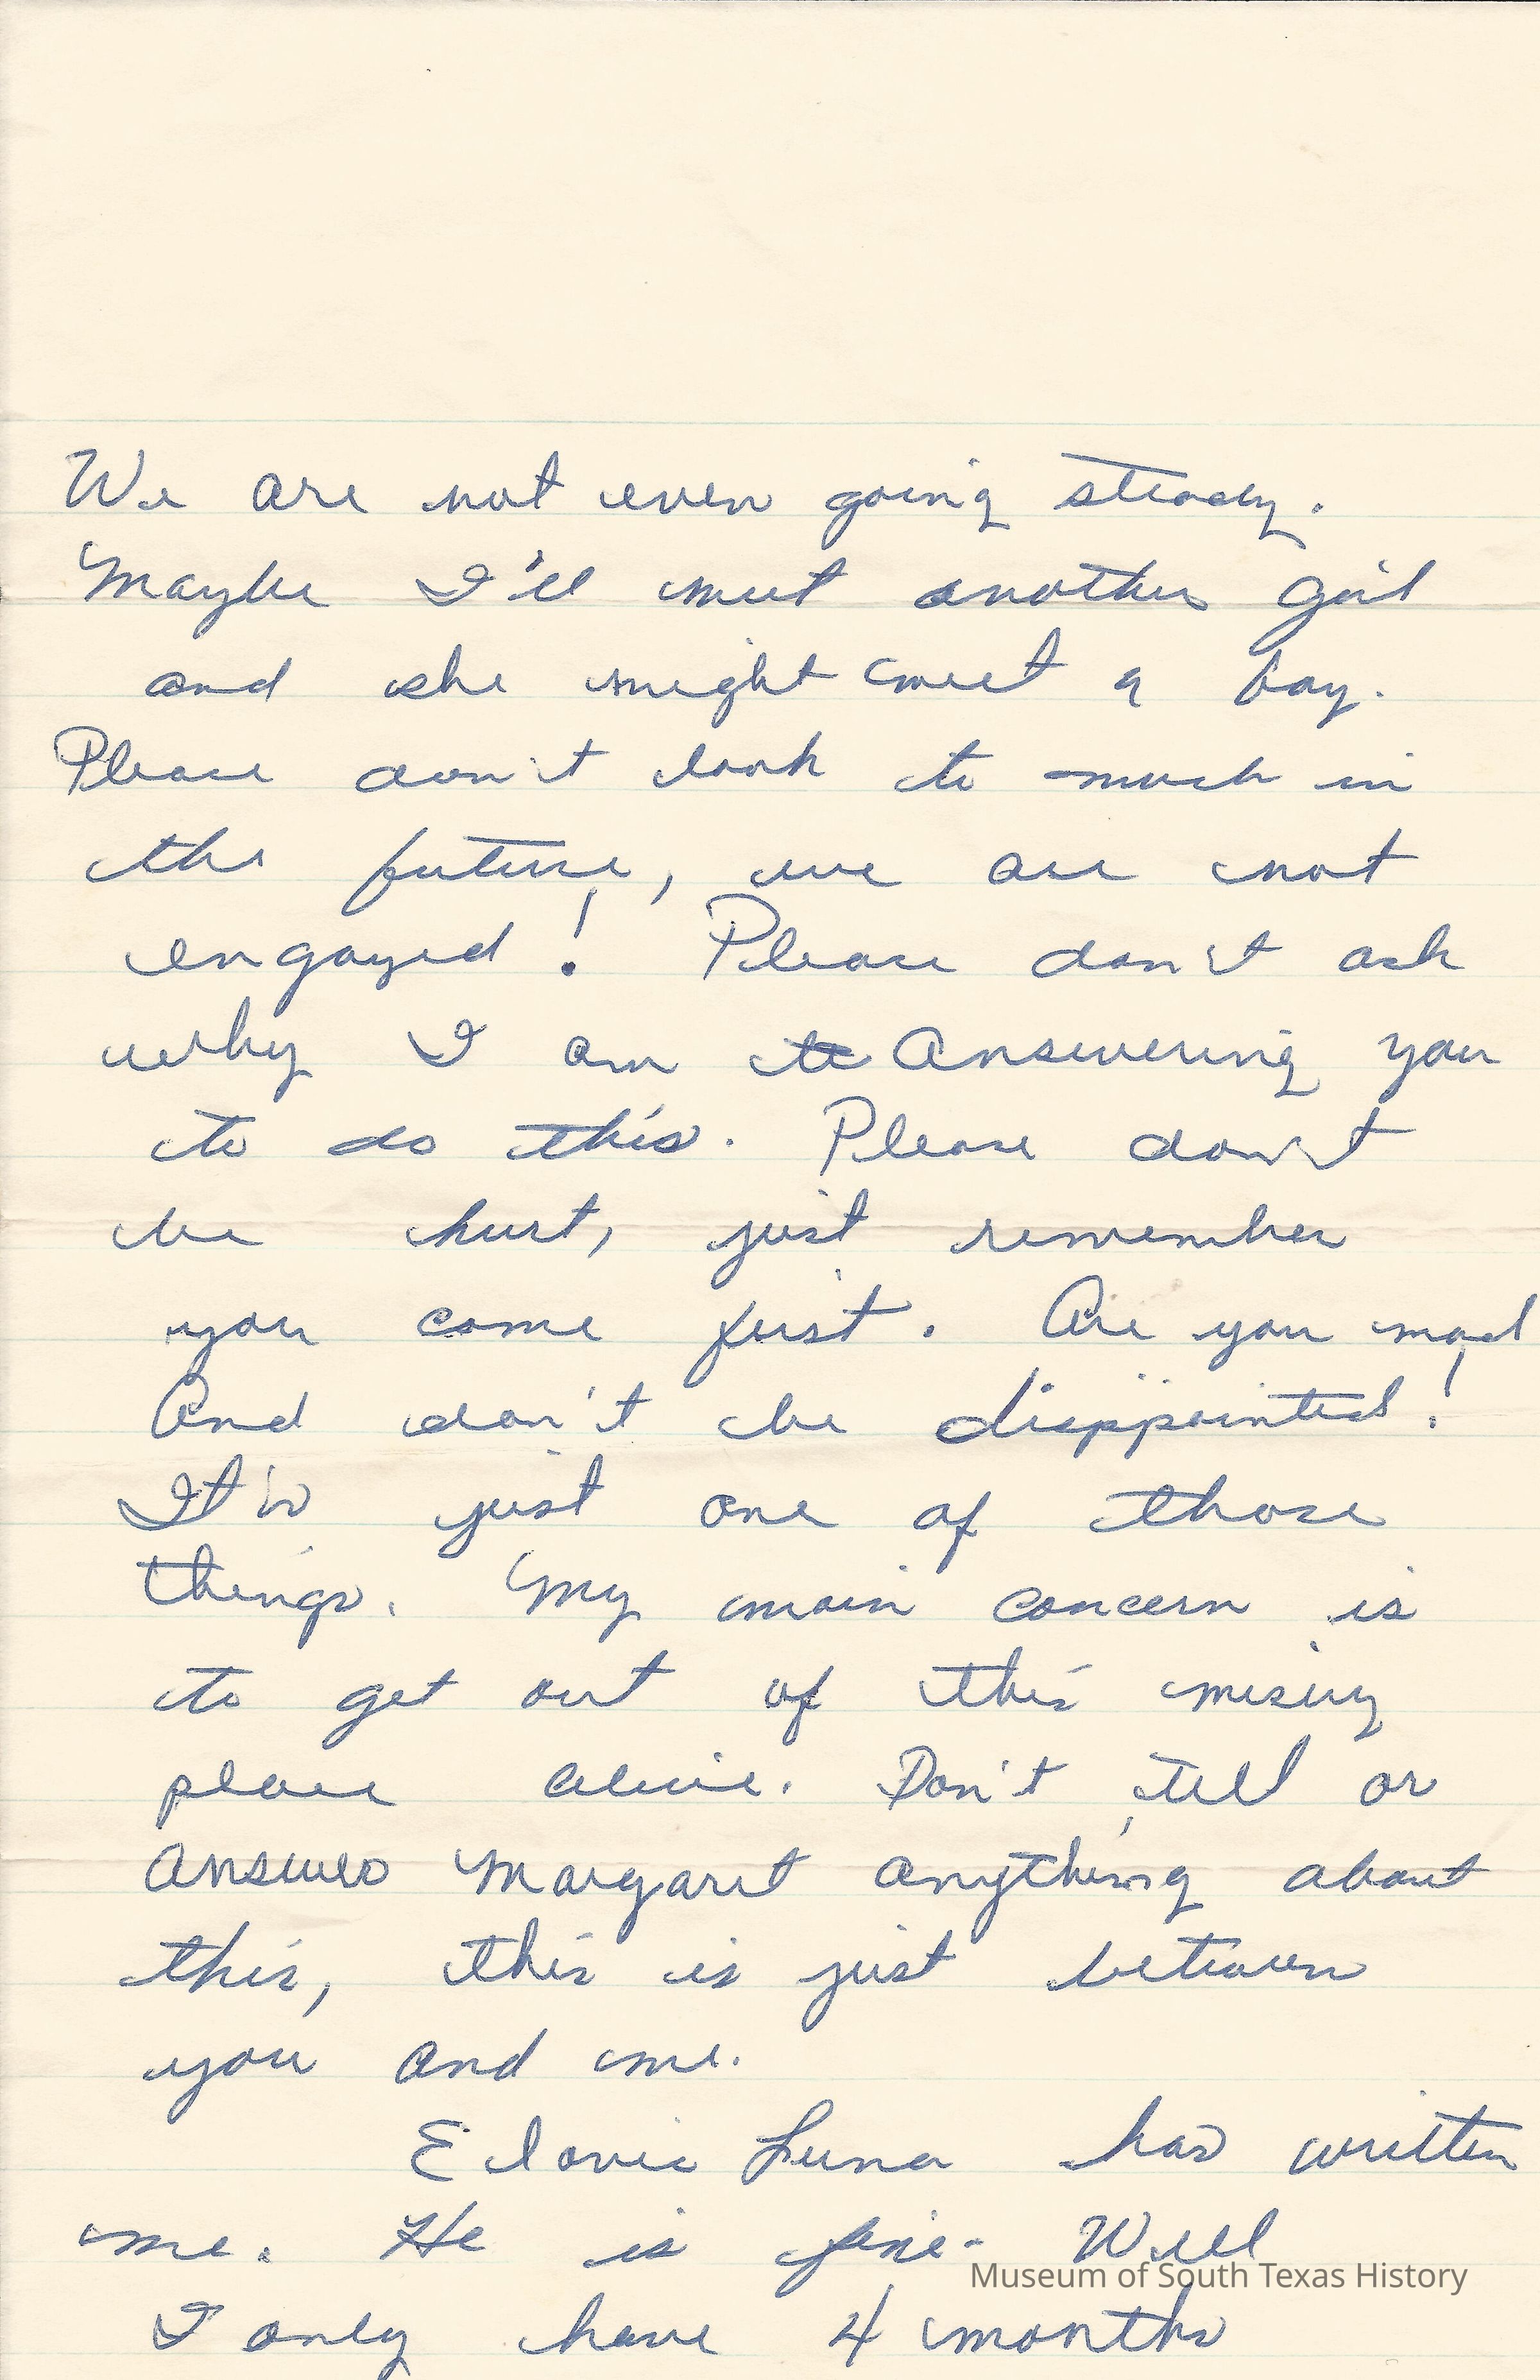 We are not even going steady.
Maybe I'll meet another girl
and she might meet a boy.
Please don't look to much in
the future, we are not
engayed! Please don't ask
why I am to answering you
to do this. Please don't
be hurt, just remember
you come first. Are you mad
And don't be disppointed!
It's just one of those
things. My main concern is
to get out of this misery
place alive. Don't tell or
answer Margaret anything about
this, this is just between
you and me.
Elovie Luna has written
me. He is fine. Well
Museum of South Texas History
I only have 4 months